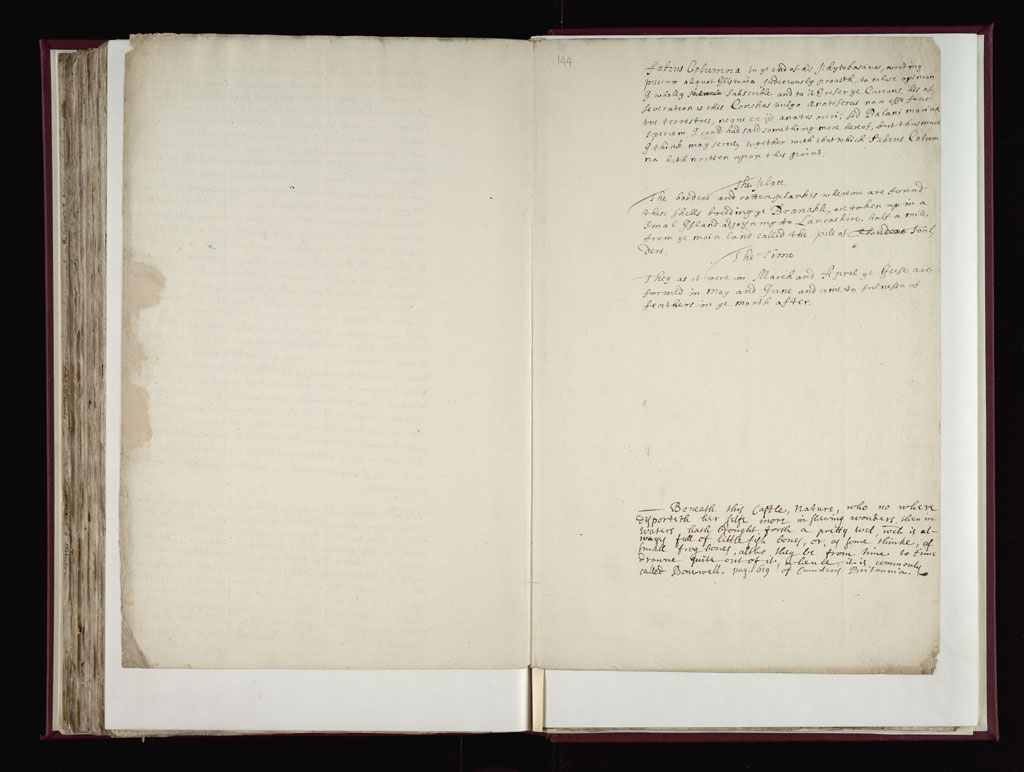 144
Fabius Columna in ye end of his Phytobasanos, writing
piscium aliquot historia judiciously proveth, to whose opinion
I wholly subscribe and to it I refer ye Curious, his as,
severation is this Conchas vulgo Anatiferas non esse fruc
tus terrestres, neque ex iis anates oriri; sed Balani marinæ
speciem I could had said something more hereof, but thus much
I think may serve, together with that which Fabius Colum
na hath written upon this point.
The place.
The bordes and rotten plankes whereon are found
these shells breeding ye Branakle, are taken up in a
smal Island adjoyning to Lancashire, half a mile
from ye main land called the pile of Foul,
ders.
The Time
They as it were in March and April ye Geese are
formed in May and June and come to fulness of
feathers in ye month after.
Beneath this Castle, Nature, who no where
disporteth her selfe more in shewing wonders, then in
waters, hath brought forth a pretty wel, wch is al-
wayes full of little fish bones, or, as some thinke, of
small frog-bones, altho they be from time to time
drawne quite out of it, whence it is commonly
called Bonewell. pag. 619 of Camdens Britannia.